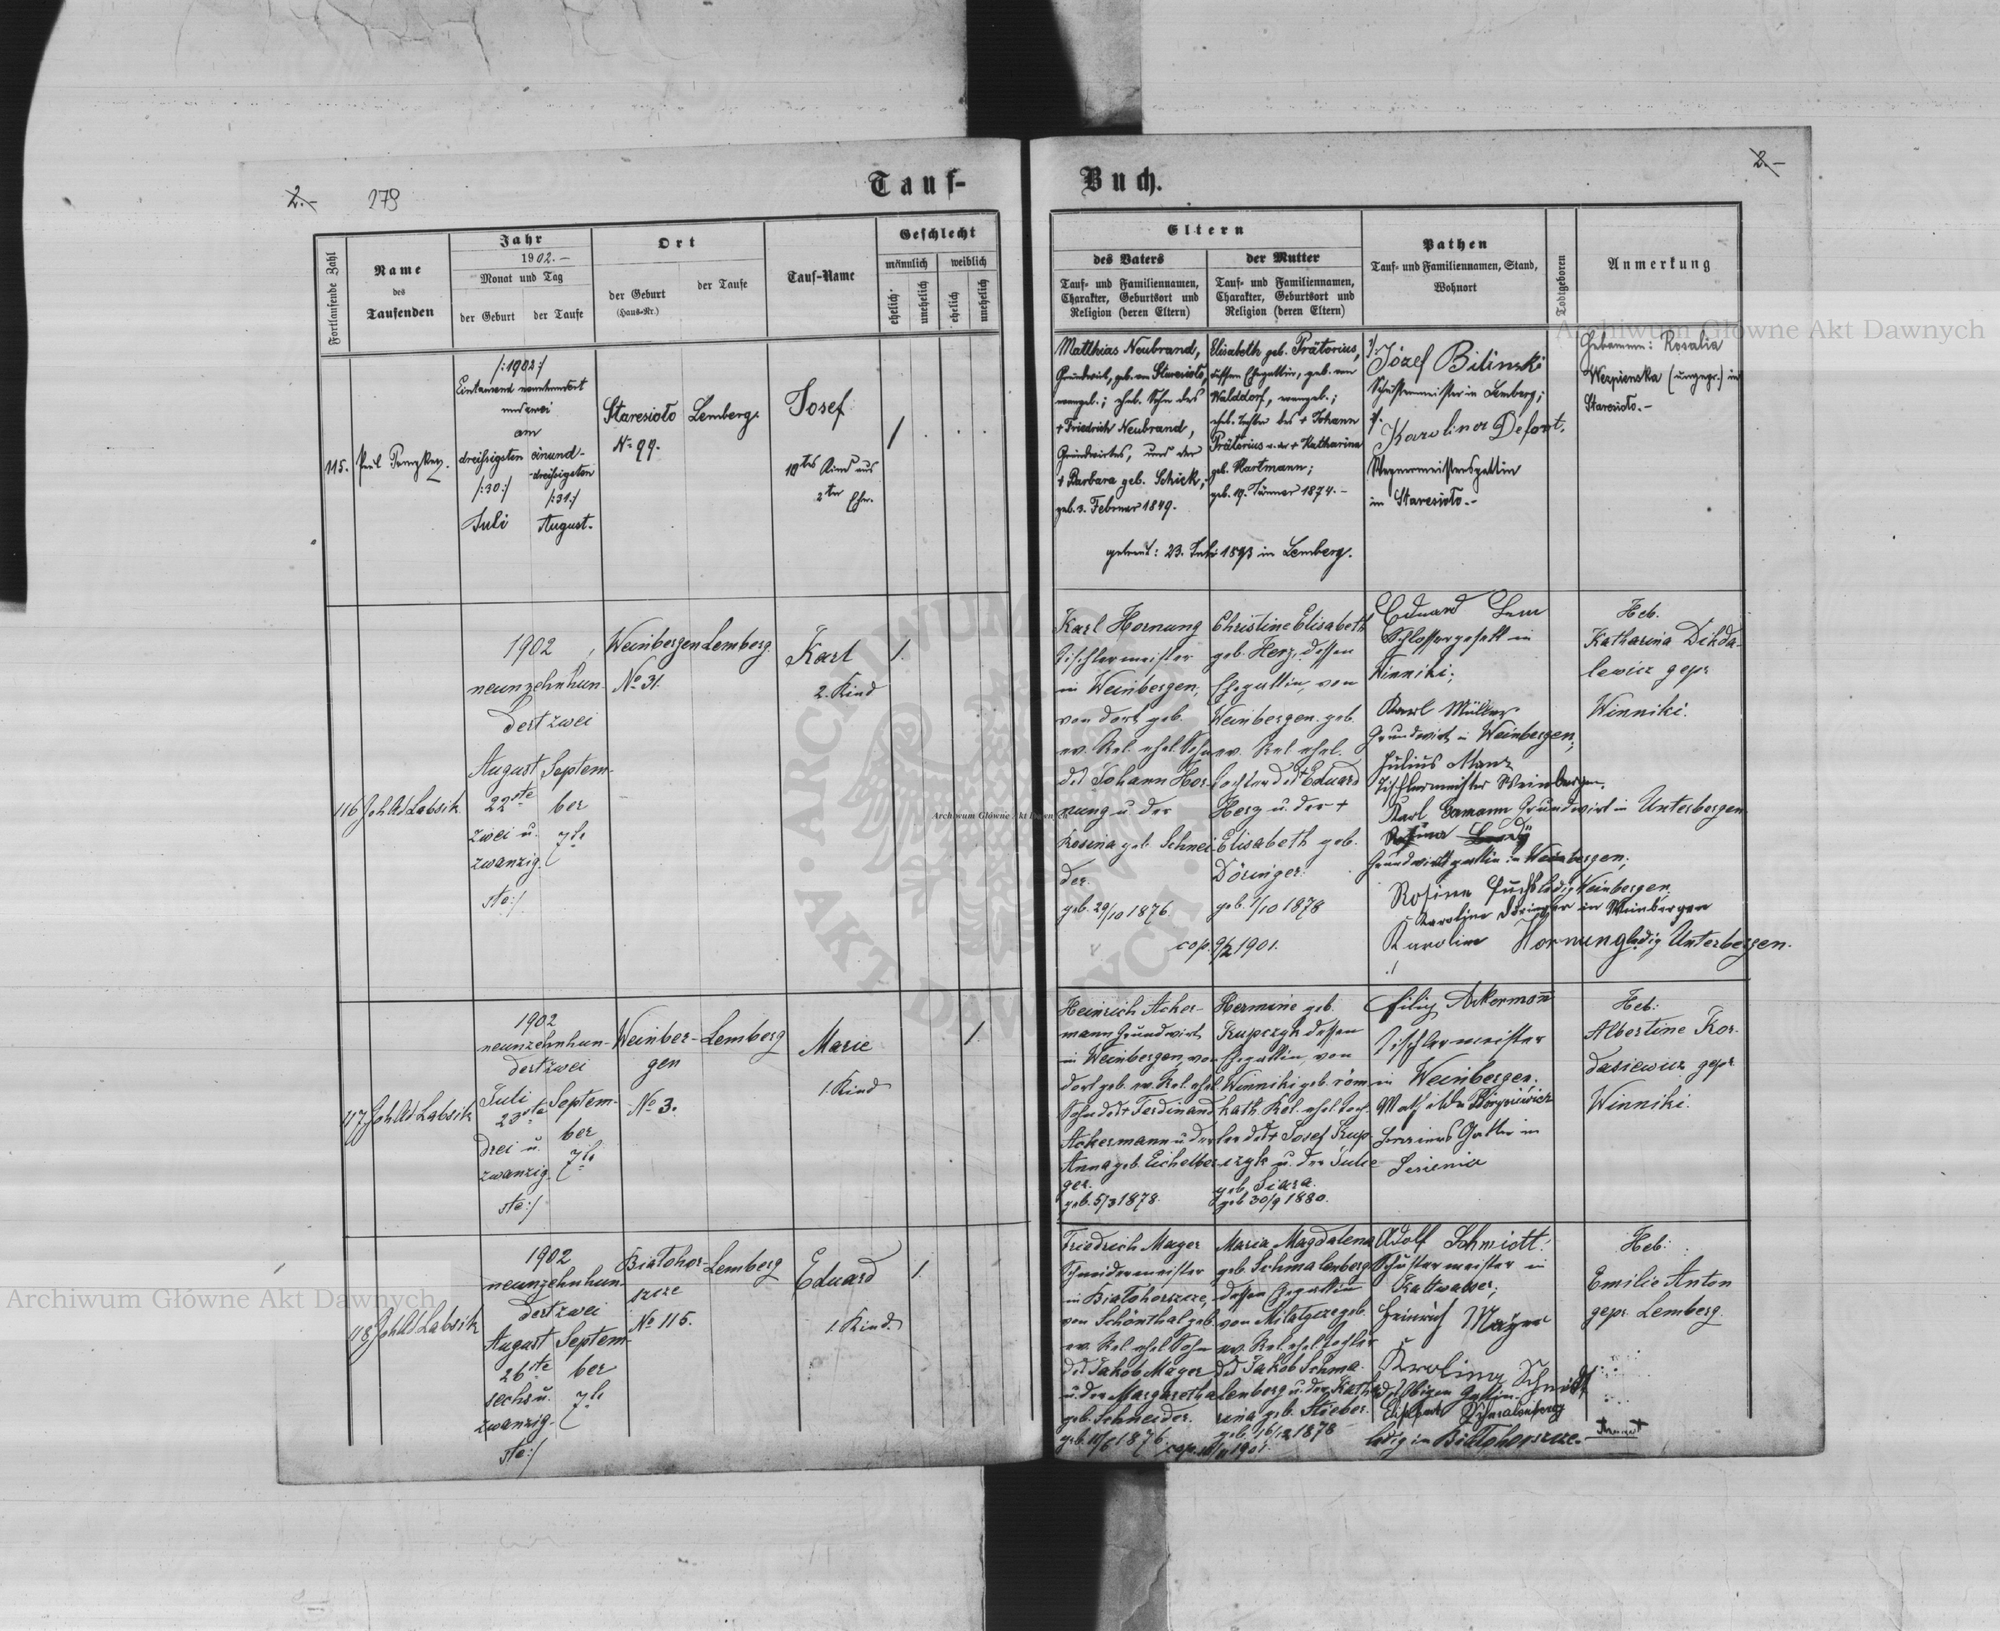 2.-
179
Tauf-
Buch.
2.-
Fortlaufende Zahl
Name
des
Taufenden
Jahr
1902.-
Monat und Tag
der Geburt
der Taufe
Ort
der Geburt
(Haus-Nr.)
der Taufe
Tauf-Name
Geschlecht
männlich
weiblich
ehelich
unehelich
ehelich
unehelich
Eltern
des Vaters
Tauf- und Familiennamen,
Charakter, Geburtsort und
Religion (deren Eltern)
der Mutter
Tauf- und Familiennamen,
Charakter, Geburtsort und
Religion (deren Eltern)
Pathen
Tauf- und Familiennamen, Stand,
Wohnort
Todtgeboren
Anmerkung
115.
/:1902:/
Eintausend neunhundert
und zwei
am
dreißigsten
/:30:/
Juli
einund-
dreißigsten
/:31:/
August.
Staresioło
№ 99.
Lemberg.
Josef
10tes Kind aus
2ter Ehe.
1
Matthias Neubrand,
Grundwirt, geb. von Staresioło,
evangel.; ehel. Sohn des
+ Friedrich Neubrand,
Grundwirtes, und der
+ Barbara geb. Schick,
geb. 3. Februar 1849.
Elisabeth geb. Prätorius,
dessen Ehegattin, geb. von
Walddorf, evangel.;
ehel. Tochter des + Johann
Prätorius u. der + Katharina
geb. Hartmann;
geb. 19. Jänner 1874.-
getraut: 23. Juli 1893 in Lemberg.
Józef Biliński
Schustermeister in Lemberg;
Karolina Defort,
Wagnermeistersgattin
in Staresioło.-
Hebamme: Rosalia
Wezpienska (ungepr.) in
Staresioło.-
116
Joh Ad Labsik
1902
neunzehnhun-
dert zwei
August
22ste
zwei u.
zwanzig-
ste:/
Septem-
ber
7te
Weinbergen
№ 31.
Lemberg
Karl
2. Kind
1.
Karl Hornung
Tischlermeister
in Weinbergen,
von dort geb.
ev. Rel. ehel. Sohn
des Johann Hor-
nung u. der
Rosina geb. Schnei-
der.
geb. 29/10 1876.
Christine Elisabeth
geb. Herz, dessen
Ehegattin, von
Weinbergen geb.
ev. Rel. ehel.
Tochter des + Eduard
Herz u. der +
Elisabeth geb.
Döringer.
geb. 1/10 1878
cop. 9/2 1901.
Eduard
Schlossergesell in
Winniki;
Karl Müller
Grundwirt in Weinbergen;
Julius Manz
Tischlermeister Weinbergen.
Karl Gamann Grundwirt in Unterbergen
Rosina
Grundwirtsgattin in Weinbergen;
Rosina Fuchs ledig Weinbergen;
Karoline Döringer in Weinbergen
Karoline Hornung ledig Unterbergen.
Heb.
Katharina Dikda-
lewicz gepr.
Winniki.
117
Joh Ad Labsik
1902
neunzehnhun-
dert zwei
Juli
23ste
drei u.
zwanzig-
ste:/
Septem-
ber
7te
Weinber-
gen
№ 3.
Lemberg
Marie
1. Kind
1.
Heinrich Acker-
mann Grundwirt
in Weinbergen, von
dort geb. ev. Rel. ehel.
Sohn des + Ferdinand
Ackermann u. der
Anna geb. Eichelber-
ger.
geb. 5/3 1878.
Hermine geb.
Krupczyk dessen
Ehegattin, von
Winniki geb. röm.
kath. Rel. ehel. Toch-
ter des + Josef Krup-
czyk u. der Julie
geb. Siara.
geb 30/9 1880.
Filip Ackermann
Tischlermeister
in Weinbergen;
Heb.
Albertine Kor-
dasiewicz gepr.
Winniki.
118
Joh Ad Labsik
1902
neunzehnhun-
dert zwei
August
26ste
sechs u.
zwanzig-
ste:/
Septem-
ber
7te
Białohor-
szcze
№ 115.
Lemberg
Eduard
1. Kind.
1.
Friedrich Mayer
Schneidermeister
in Białohorszcze,
von Schönthal geb.
ev. Rel. ehel. Sohn
des Jakob Mayer
u. der Margaretha
geb. Schneider.
geb. 11/6 1876.
Maria Magdalena
geb. Schmalenberg
dessen Ehegattin
von Milatycze geb.
ev. Rel. ehel. Tochter
des Jakob Schma-
lenberg u. der Katha-
rina geb. Stieber.
geb. 16/12 1878
Adolf Schmidt.
Schustermeister in
Kaltwasser;
Heinrich Mayer
Karolina Schmidt
desselbigen Gattin
Elisabeth Schmalenberg
ledig in Białohorszcze.
Heb:
Emilie Anton
gepr. Lemberg.
Archiwum Główne Akt Dawnych
Archiwum Główne Akt Dawnych
Archiwum Główne Akt Dawnych
ARCHIWUM
AKT DAWNYCH